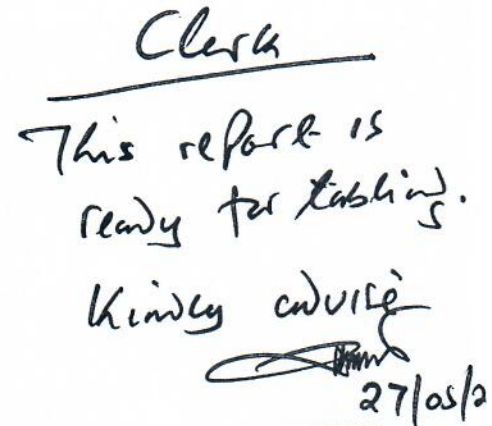 Clerk
This report is
ready for tabling.
Kindly advise
27/05/2